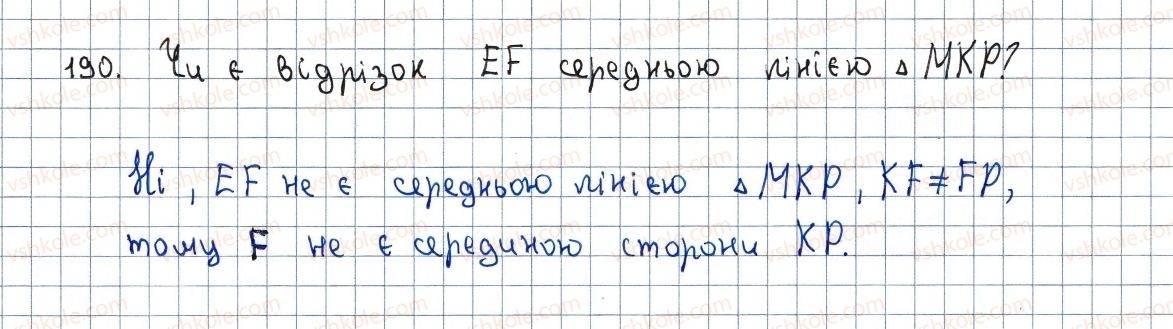 190. Чи є відрізок EF середньою лінією △ MKP?
Ні, EF не є середньою лінією △ MKP, KF ≠ FP,
тому F не є серединою сторони KP.